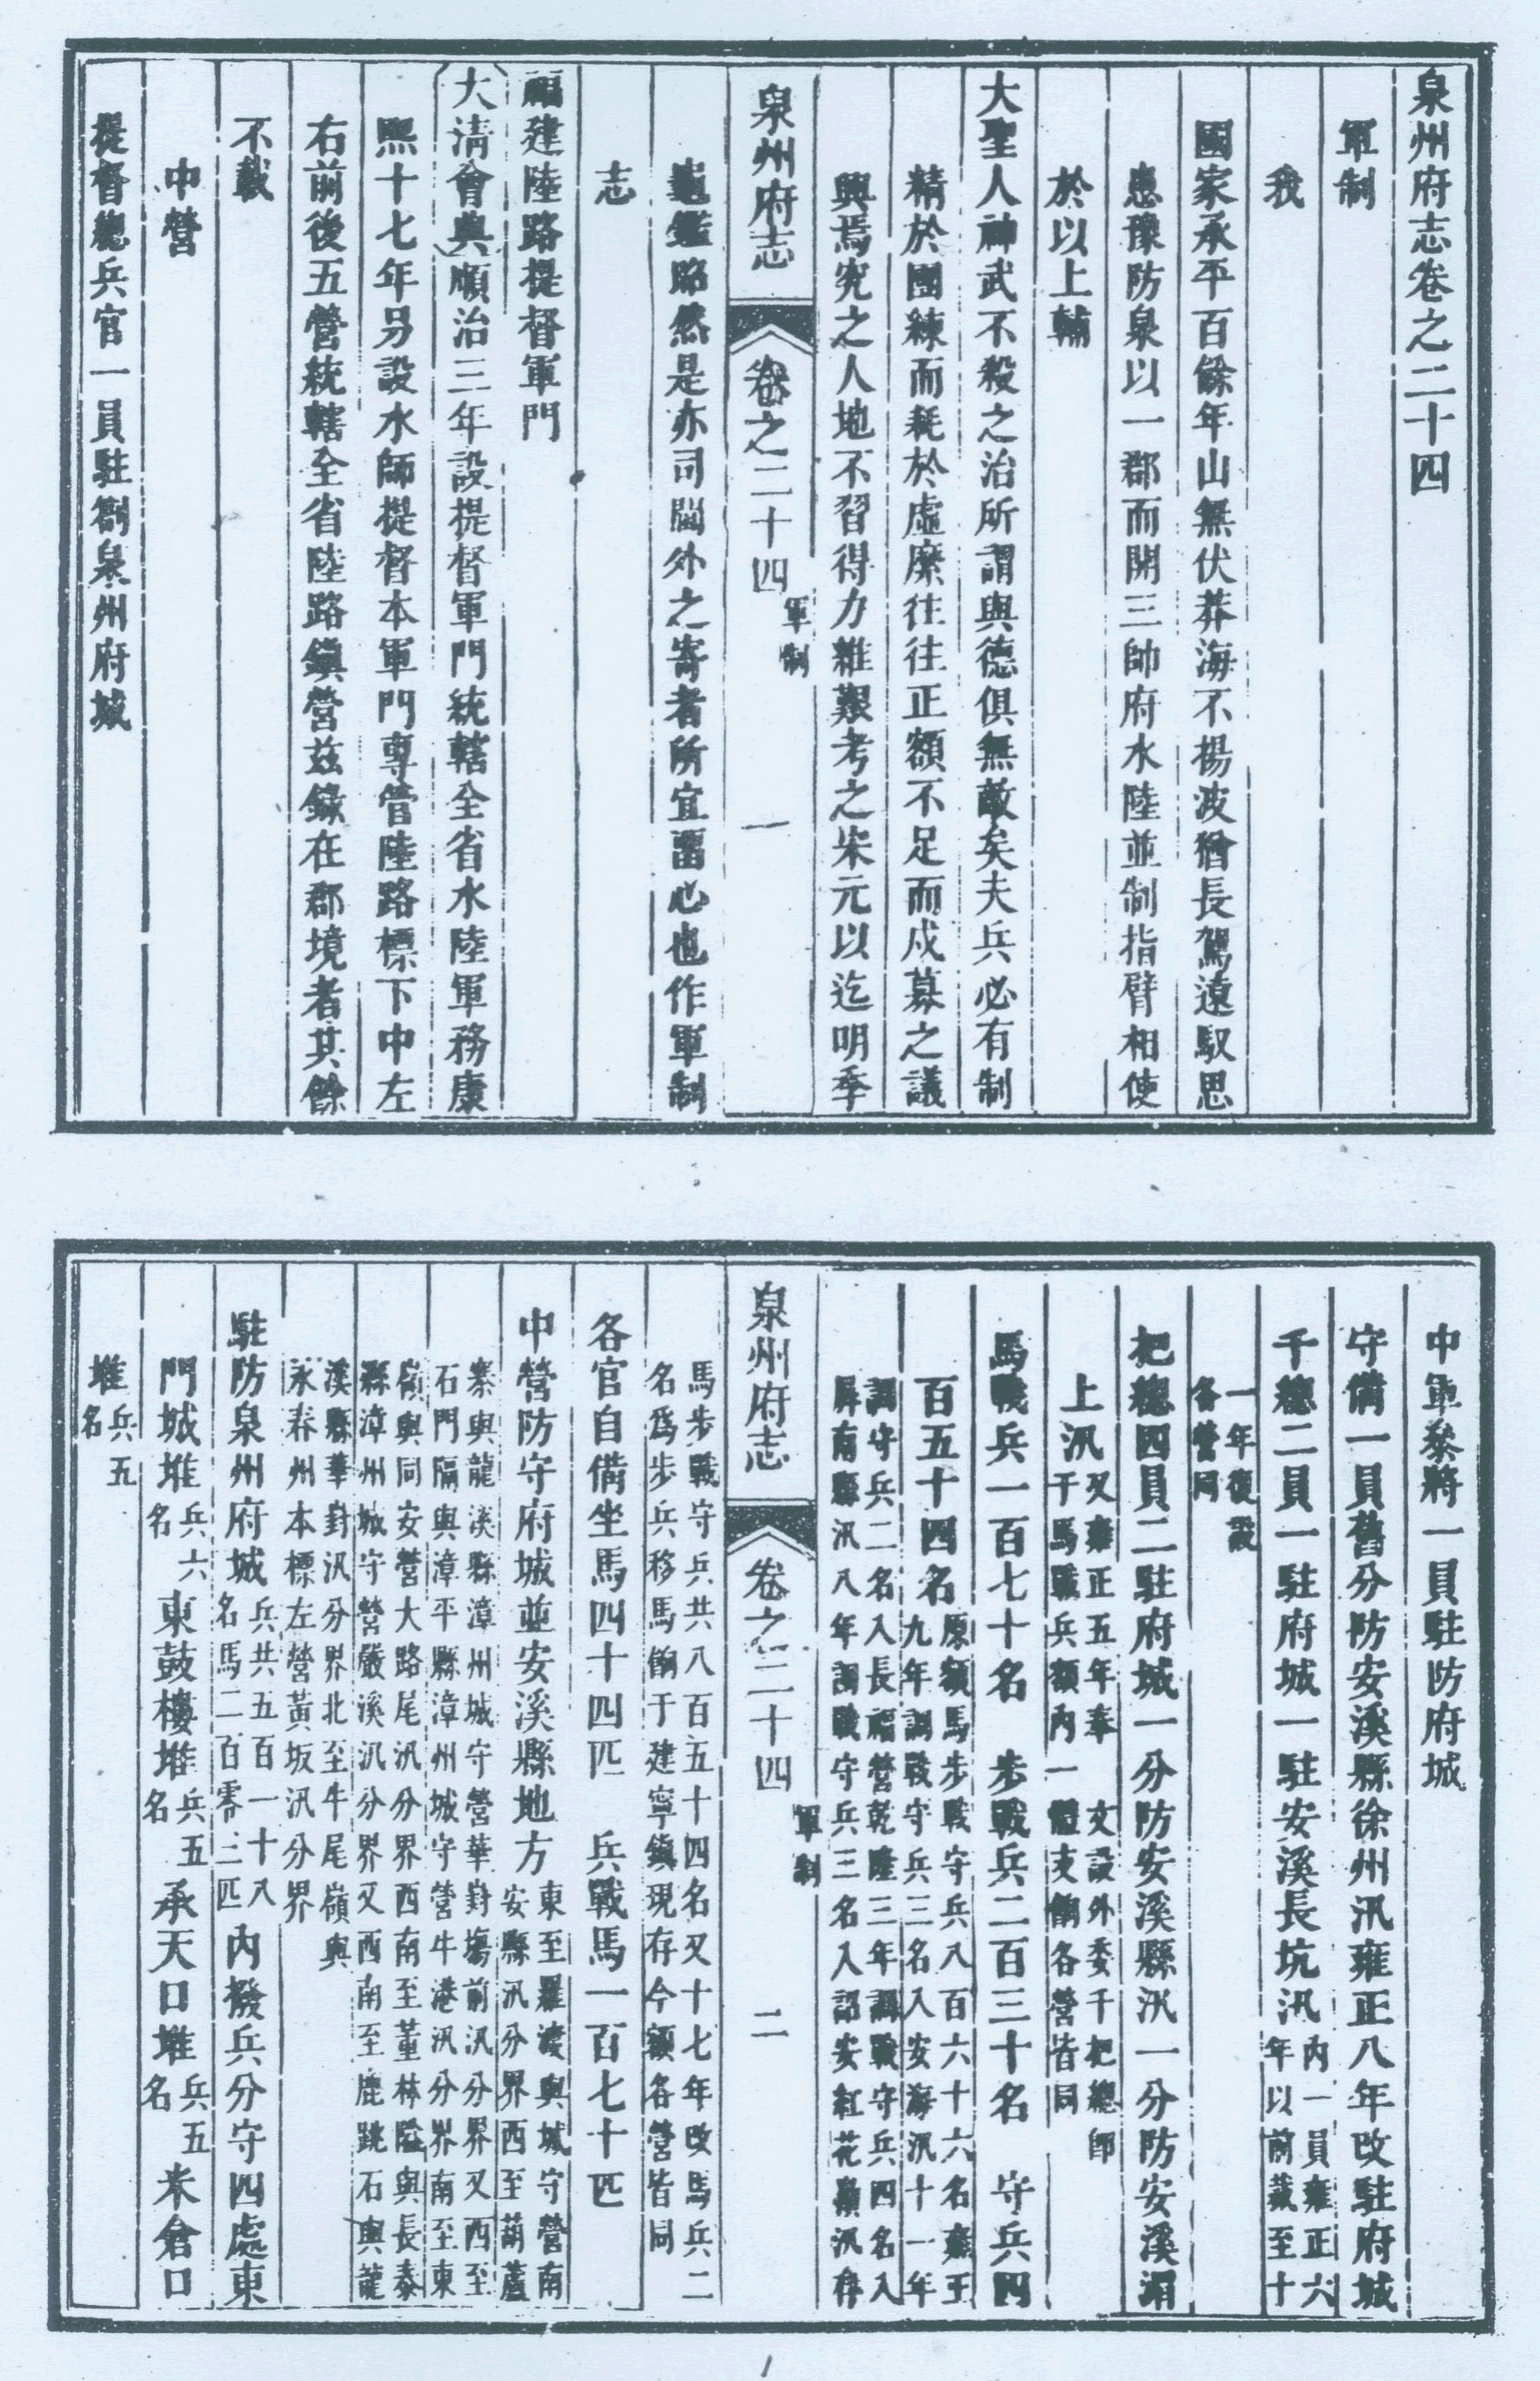 泉州府志卷之二十四
軍制
我
國家承平百餘年山無伏莽海不揚波猶長駕遠馭思
患豫防泉以一郡而開三帥府水陸並制指臂相使
於以上輔
大聖人神武不殺之治所謂與德俱無敵矣夫兵必有制
精於團練而耗於虛糜往往正額不足而戍募之議
興焉究之人地不習得力維艱考之宋元以迄明季
泉州府志
卷之二十四
軍制
一
龜鑑昭然是亦司閫外之寄者所宜畱心也作軍制
志
福建陸路提督軍門
大清會典順治三年設提督軍門統轄全省水陸軍務康
熙十七年另設水師提督本軍門專管陸路標下中左
右前後五營統轄全省陸路鎮營兹錄在郡境者其餘
不載
中營
提督總兵官一員駐劄泉州府城
中軍叅將一員駐防府城
守備一員舊分防安溪縣徐州汛雍正八年改駐府城
千總二員一駐府城一駐安溪長坑汛內一員雍正六
年以前裁至十
一年復設
各營同
把總四員二駐府城一分防安溪縣汛一分防安溪湄
上汛又雍正五年奉 文設外委千把總即
于馬戰兵額內一體支餉各營皆同
馬戰兵一百七十名 步戰兵二百三十名 守兵四
百五十四名原額馬步戰守兵八百六十六名雍正
九年調戰守兵三名入安海汛十一年
調守兵二名入長福營乾隆三年調戰守兵四名入
屏南縣汛八年調戰守兵三名入詔安紅花嶺汛存
泉州府志
卷之二十四
軍制
二
馬步戰守兵共八百五十四名又十七年改馬兵二
名為步兵移馬餉于建寧鎮現存今額各營皆同
各官自備坐馬四十四匹 兵戰馬一百七十匹
中營防守府城並安溪縣地方東至羅渡與城守營南
安縣汛分界西至葫蘆
寨與龍溪縣漳州城守營華對塲前汛分界又西至
石門隔與漳平縣漳州城守營牛港汛分界南至東
嶺與同安營大路尾汛分界西南至董林隘與長泰
縣漳州城守營嚴溪汛分界又西南至鹿跳石與龍
溪縣華對汛分界北至牛尾嶺與
永春州本標左營黃坂汛分界
駐防泉州府城兵共五百一十八
名馬二百零三匹內撥兵分守四處東
門城堆兵六
名東鼓樓堆兵五
名承天口堆兵五
名米倉口
堆兵五
名